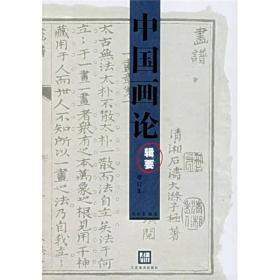 中国画论
辑要
畫譜
清湘石濤大滌子極
太古無法太朴不散太朴一散而法自立矣法于何
立于一畫一畫者衆有之本萬象之根見用于神
藏用于人而世人不知所以一畫之法乃自我立